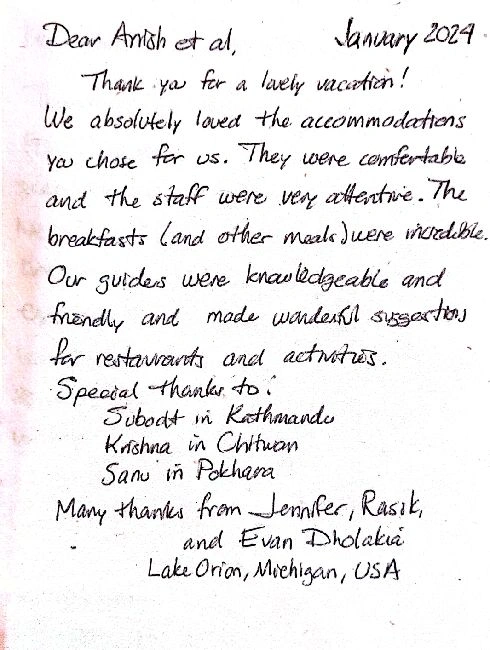 Dear Anish et al, January 2024
Thank you for a lovely vacation!
We absolutely loved the accommodations
you chose for us. They were comfortable
and the staff were very attentive. The
breakfasts (and other meals) were incredible.
Our guides were knowledgeable and
friendly and made wonderful suggestions
for restaurants and activities.
Special thanks to:
Subodt in Kathmandu
Krishna in Chitwan
Sanu in Pokhara
Many thanks from Jennifer, Rasik,
and Evan Dholakia
Lake Orion, Michigan, USA